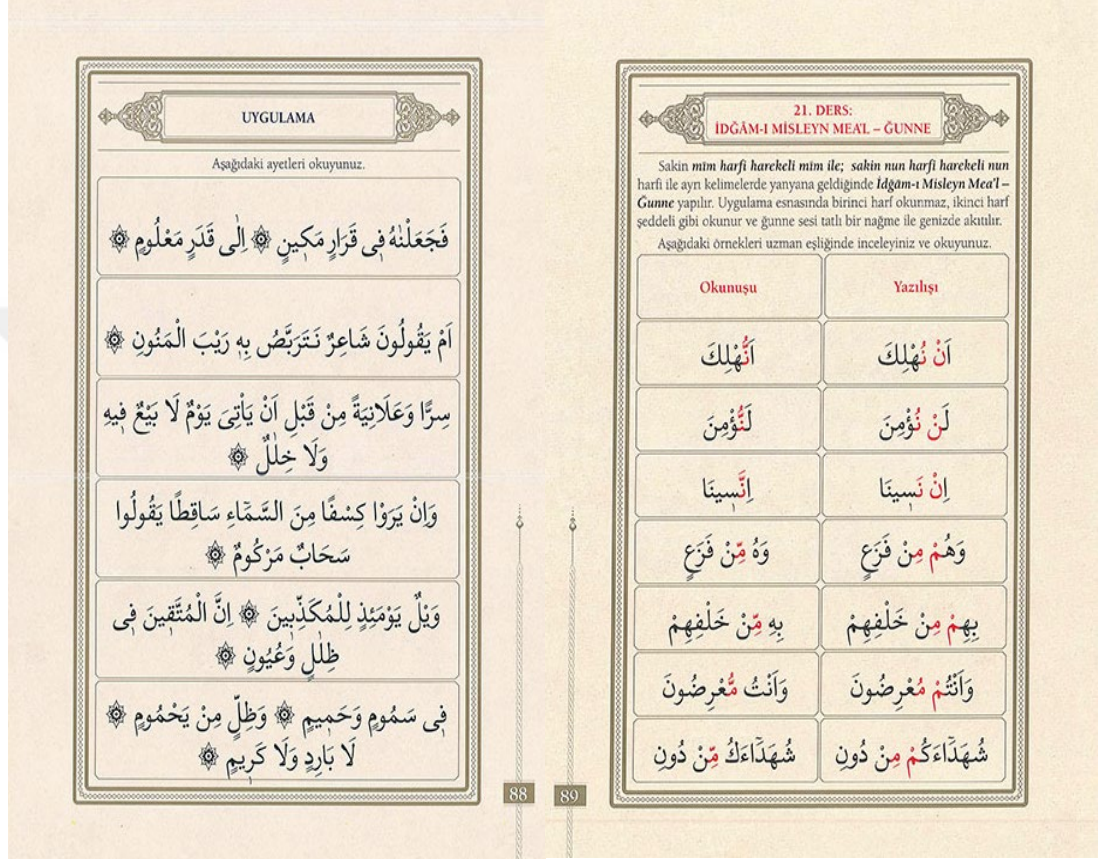 UYGULAMA
Aşağıdaki ayetleri okuyunuz.
فَجَعَلْنٰهُ فٖى قَرَارٍ مَكٖينٍ ۞ اِلٰى قَدَرٍ مَعْلُومٍ ۞
اَمْ يَقُولُونَ شَاعِرٌ نَتَرَبَّصُ بِهٖ رَيْبَ الْمَنُونِ ۞
سِرًّا وَعَلَانِيَةً مِنْ قَبْلِ اَنْ يَاْتِىَ يَوْمٌ لَا بَيْعٌ فٖيهِ
وَلَا خِلَالٌ ۞
وَاِنْ يَرَوْا كِسْفًا مِنَ السَّمَٓاءِ سَاقِطًا يَقُولُوا
سَحَابٌ مَرْكُومٌ ۞
وَيْلٌ يَوْمَئِذٍ لِلْمُكَذِّبٖينَ ۞ اِنَّ الْمُتَّقٖينَ فٖى
ظِلَالٍ وَعُيُونٍ ۞
فٖى سَمُومٍ وَحَمٖيمٍ ۞ وَظِلٍّ مِنْ يَحْمُومٍ ۞
لَا بَارِدٍ وَلَا كَرٖيمٍ ۞
88
21. DERS:
İDĞÂM-I MİSLEYN MEA'L – ĞUNNE
Sakin mîm harfi harekeli mîm ile; sakin nun harfi harekeli nun
harfi ile ayrı kelimelerde yanyana geldiğinde İdğâm-ı Misleyn Mea'l –
Ğunne yapılır. Uygulama esnasında birinci harf okunmaz, ikinci harf
şeddeli gibi okunur ve ğunne sesi tatlı bir nağme ile genizde akıtılır.
Aşağıdaki örnekleri uzman eşliğinde inceleyiniz ve okuyunuz.
Okunuşu Yazılışı
اَنْ نُهْلِكَ اَنُّهْلِكَ
لَنْ نُؤْمِنَ لَنُّؤْمِنَ
اِنْ نَسٖينَا اِنَّسٖينَا
وَهُمْ مِنْ فَزَعٍ وَهُ مِّنْ فَزَعٍ
بِهِمْ مِنْ خَلْفِهِمْ بِهِ مِّنْ خَلْفِهِمْ
وَاَنْتُمْ مُعْرِضُونَ وَاَنْتُ مُّعْرِضُونَ
شُهَدَٓاءَكُمْ مِنْ دُونِ شُهَدَٓاءَكُ مِّنْ دُونِ
89